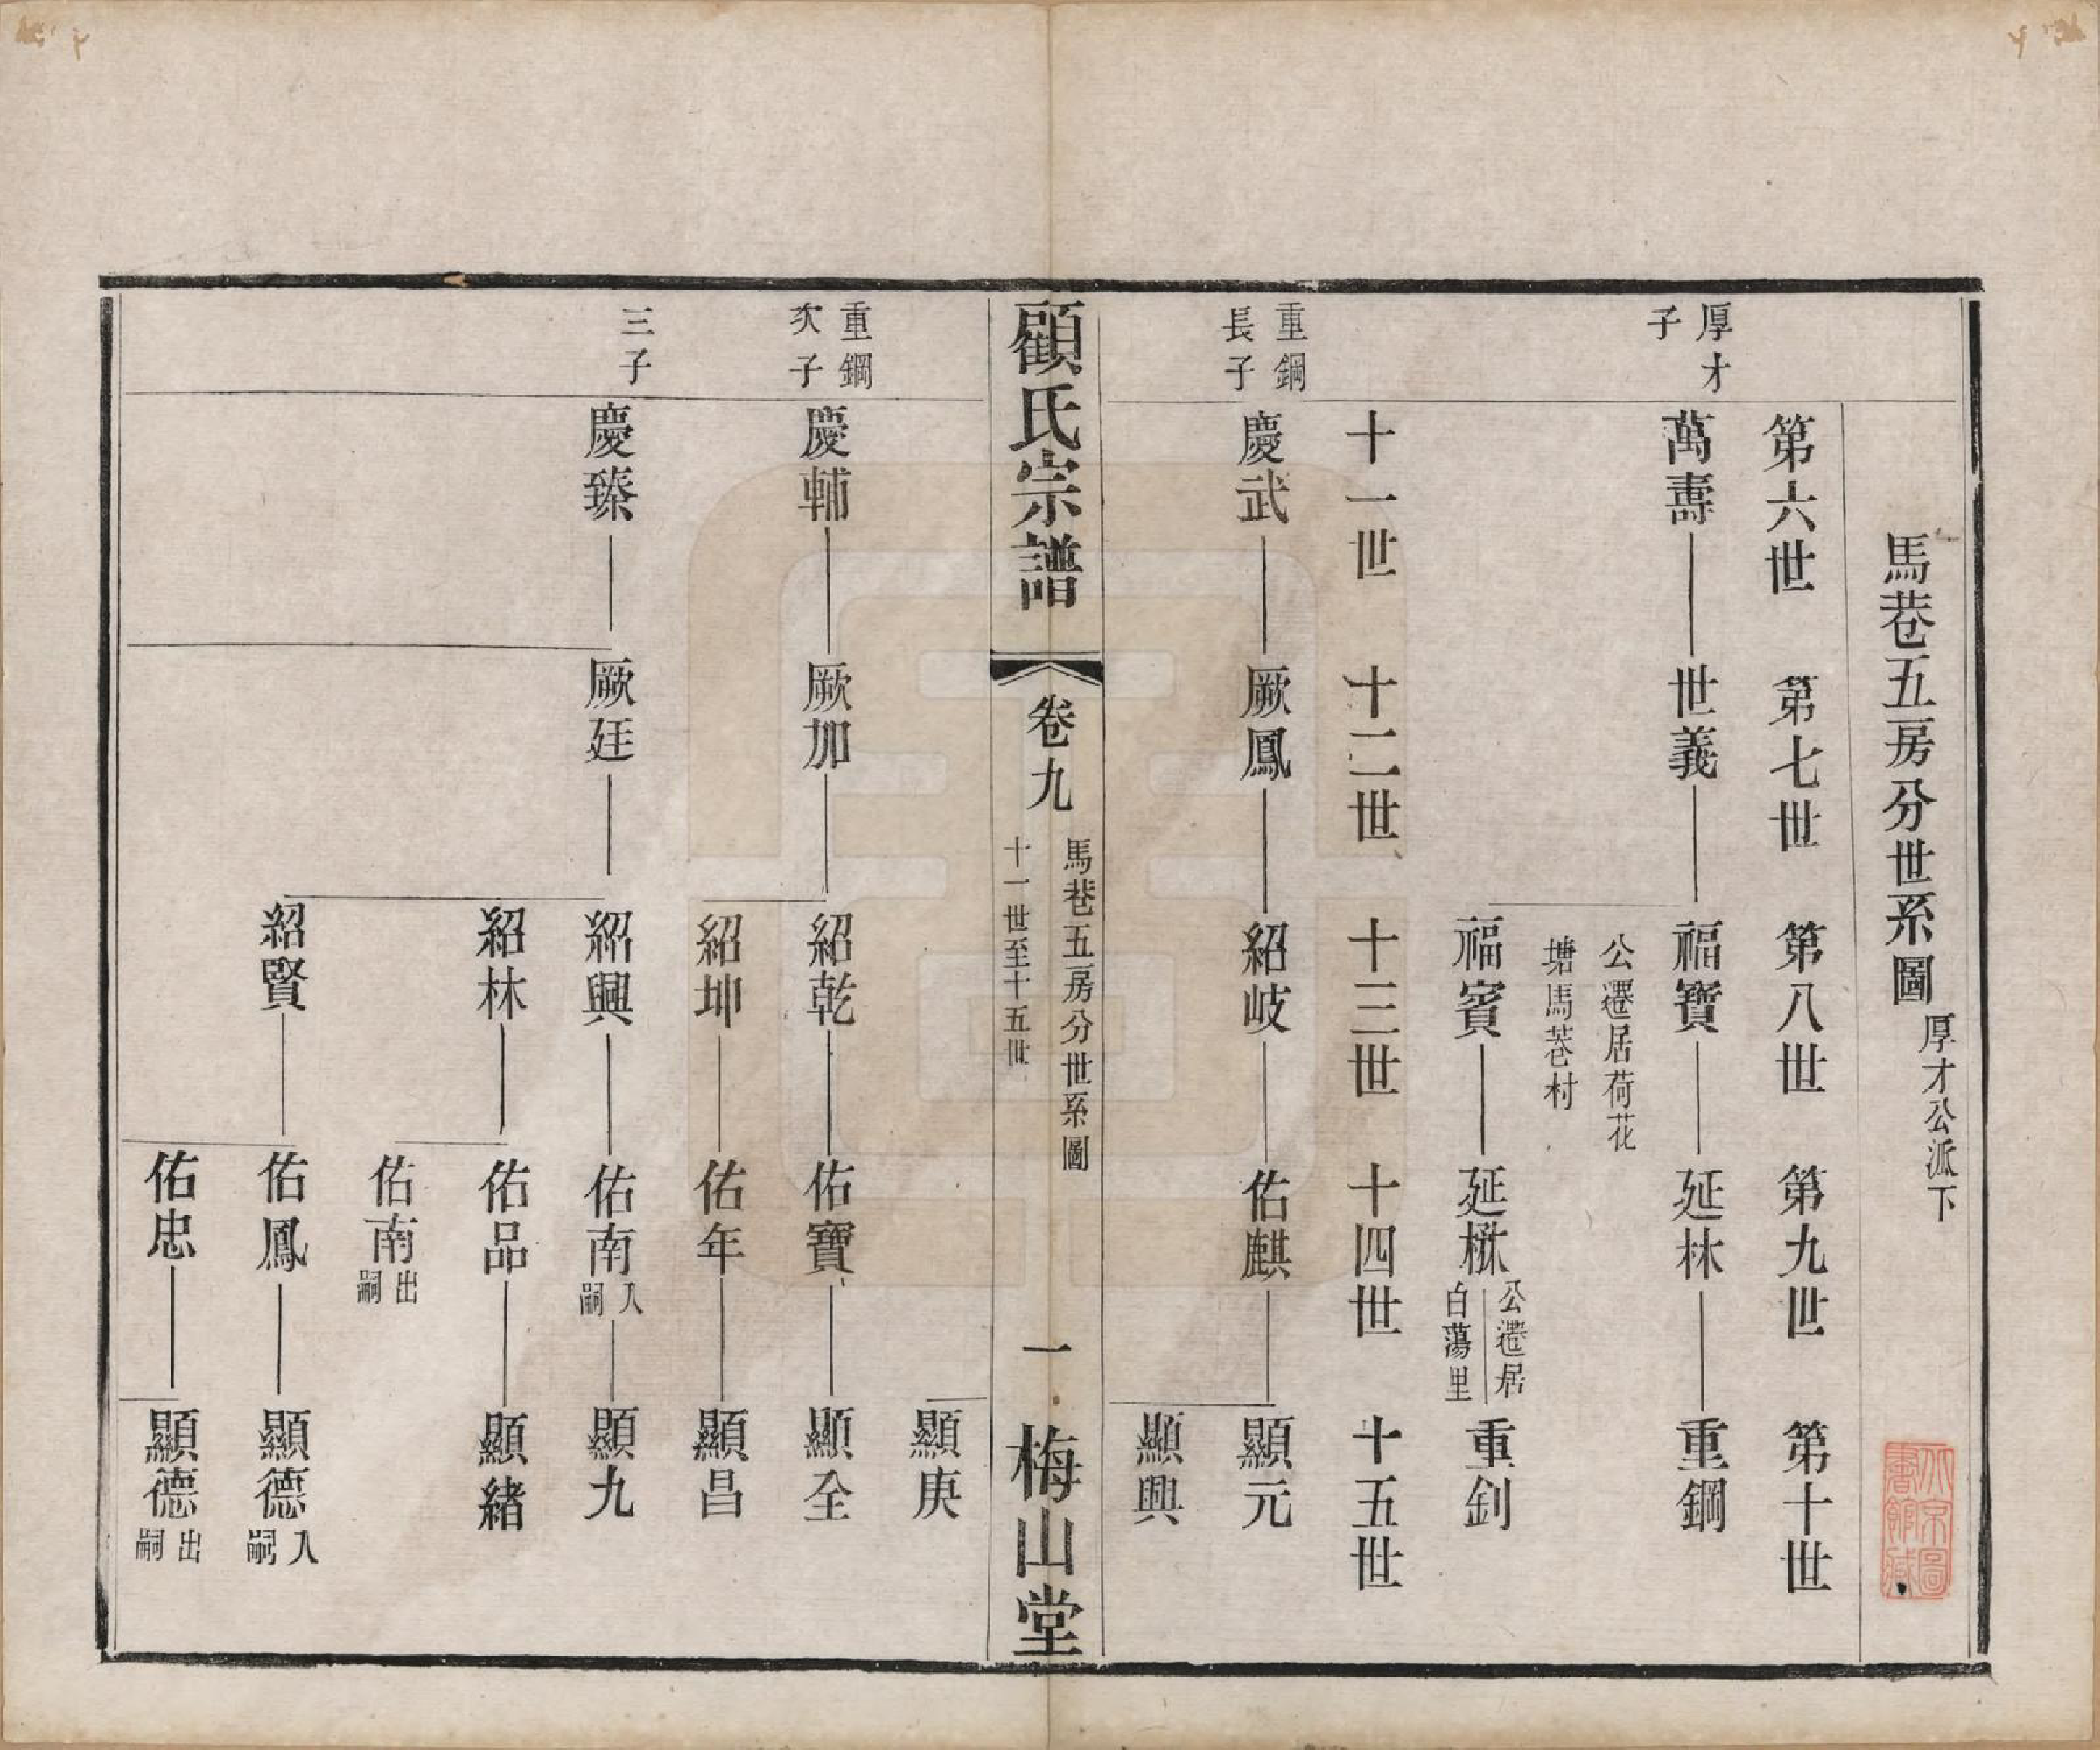 馬巷五房分世系圖 厚才公派下
第六世 第七世 第八世 第九世 第十世
厚才子
萬壽 世義 福寶 延林 重鋼
公遷居荷花
塘馬巷村
福賓 延楙 公遷居白蕩里 重釗
十一世 十二世 十三世 十四世 十五世
重鋼長子
慶武 厥鳳 紹岐 佑麒 顯元
顯興
顧氏宗譜
卷九
馬巷五房分世系圖
十一世至十五世
一
梅山堂
顯庚
重鋼次子
慶輔 厥加 紹乾 佑寶 顯全
紹坤 佑年 顯昌
三子
慶臻 厥廷 紹興 佑南 入嗣 顯九
紹林 佑品 顯緒
佑南 出嗣
紹賢 佑鳳 顯德 入嗣
佑忠 顯德 出嗣